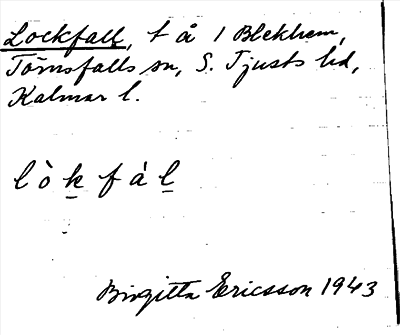 Lockfall, t å 1 Blekhem,
Törnsfalls sn, S. Tjusts hd,
Kalmar l.
l ò k̲ f á l̲
Birgitta Ericsson 1943